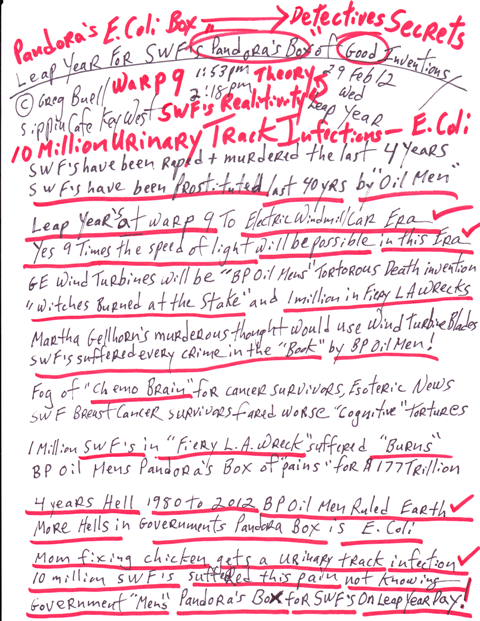 Pandora's E. Coli Box → Detectives Secrets
Leap Year For SWF's Pandora's Box" of Good Inventions
© Greg Buell WARP 9 1:53pm Theory 29 Feb 12
2:18pm Wed
Sippin Cafe Key West SWF's Realitivity Leap Year
10 Million Urinary Track Infections — E. Coli
SWF's have been Raped + murdered the last 4 years
SWF's have been Prostituted last 40 yrs by "Oil Men"
Leap Year's at warp 9 To Electric Windmill Car Era
Yes 9 Times the speed of light will be possible in this Era
GE Wind Turbines will be "BP Oil Mens" Tortorous Death invention
"witches Burned at the Stake" and 1 million in Fiery LA wrecks
Martha Gellhorn's murderous thought would use Wind Turbine Blades
SWF's suffered every crime in the "Book" by BP Oil Men!
Fog of "Chemo Brain" for cancer survivors, Esoteric News
SWF Breast Cancer survivors fared worse "Cognitive" Tortures
1 Million SWF's in "Fiery L.A. Wreck" suffered "Burns"
BP Oil Mens Pandora's Box of "pains" for A 177 Trillion
4 years Hell 1980 to 2012 BP Oil Men Ruled Earth
More Hells in Governments Pandora Box is E. Coli
Mom fixing chicken gets a urinary track infection
10 million SWF's suffered this pain not knowing
Government "Mens" Pandora's Box for SWF's On Leap Year Day!